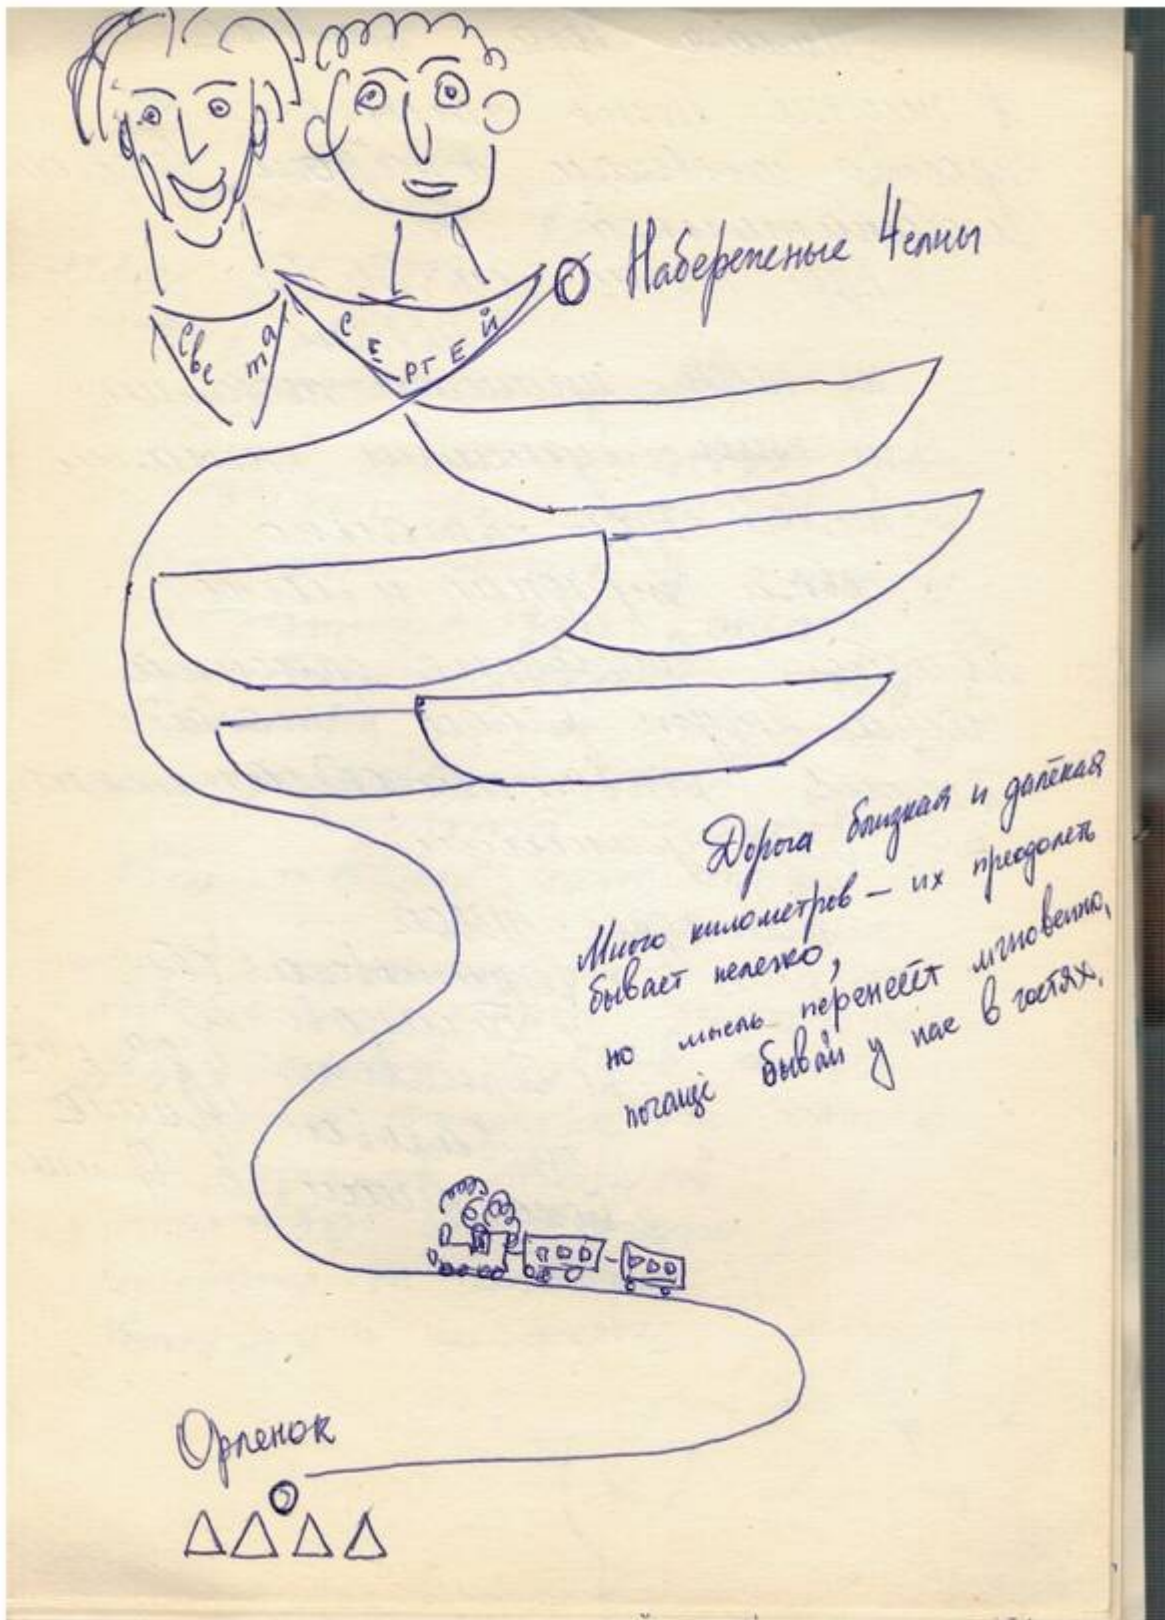 Света
СЕРГЕЙ
Набережные Челны
Дорога близкая и далёкая
Много километров – их преодолеть
бывает нелегко,
но мысль перенесёт мгновенно,
почаще бывай у нас в гостях.
Орленок